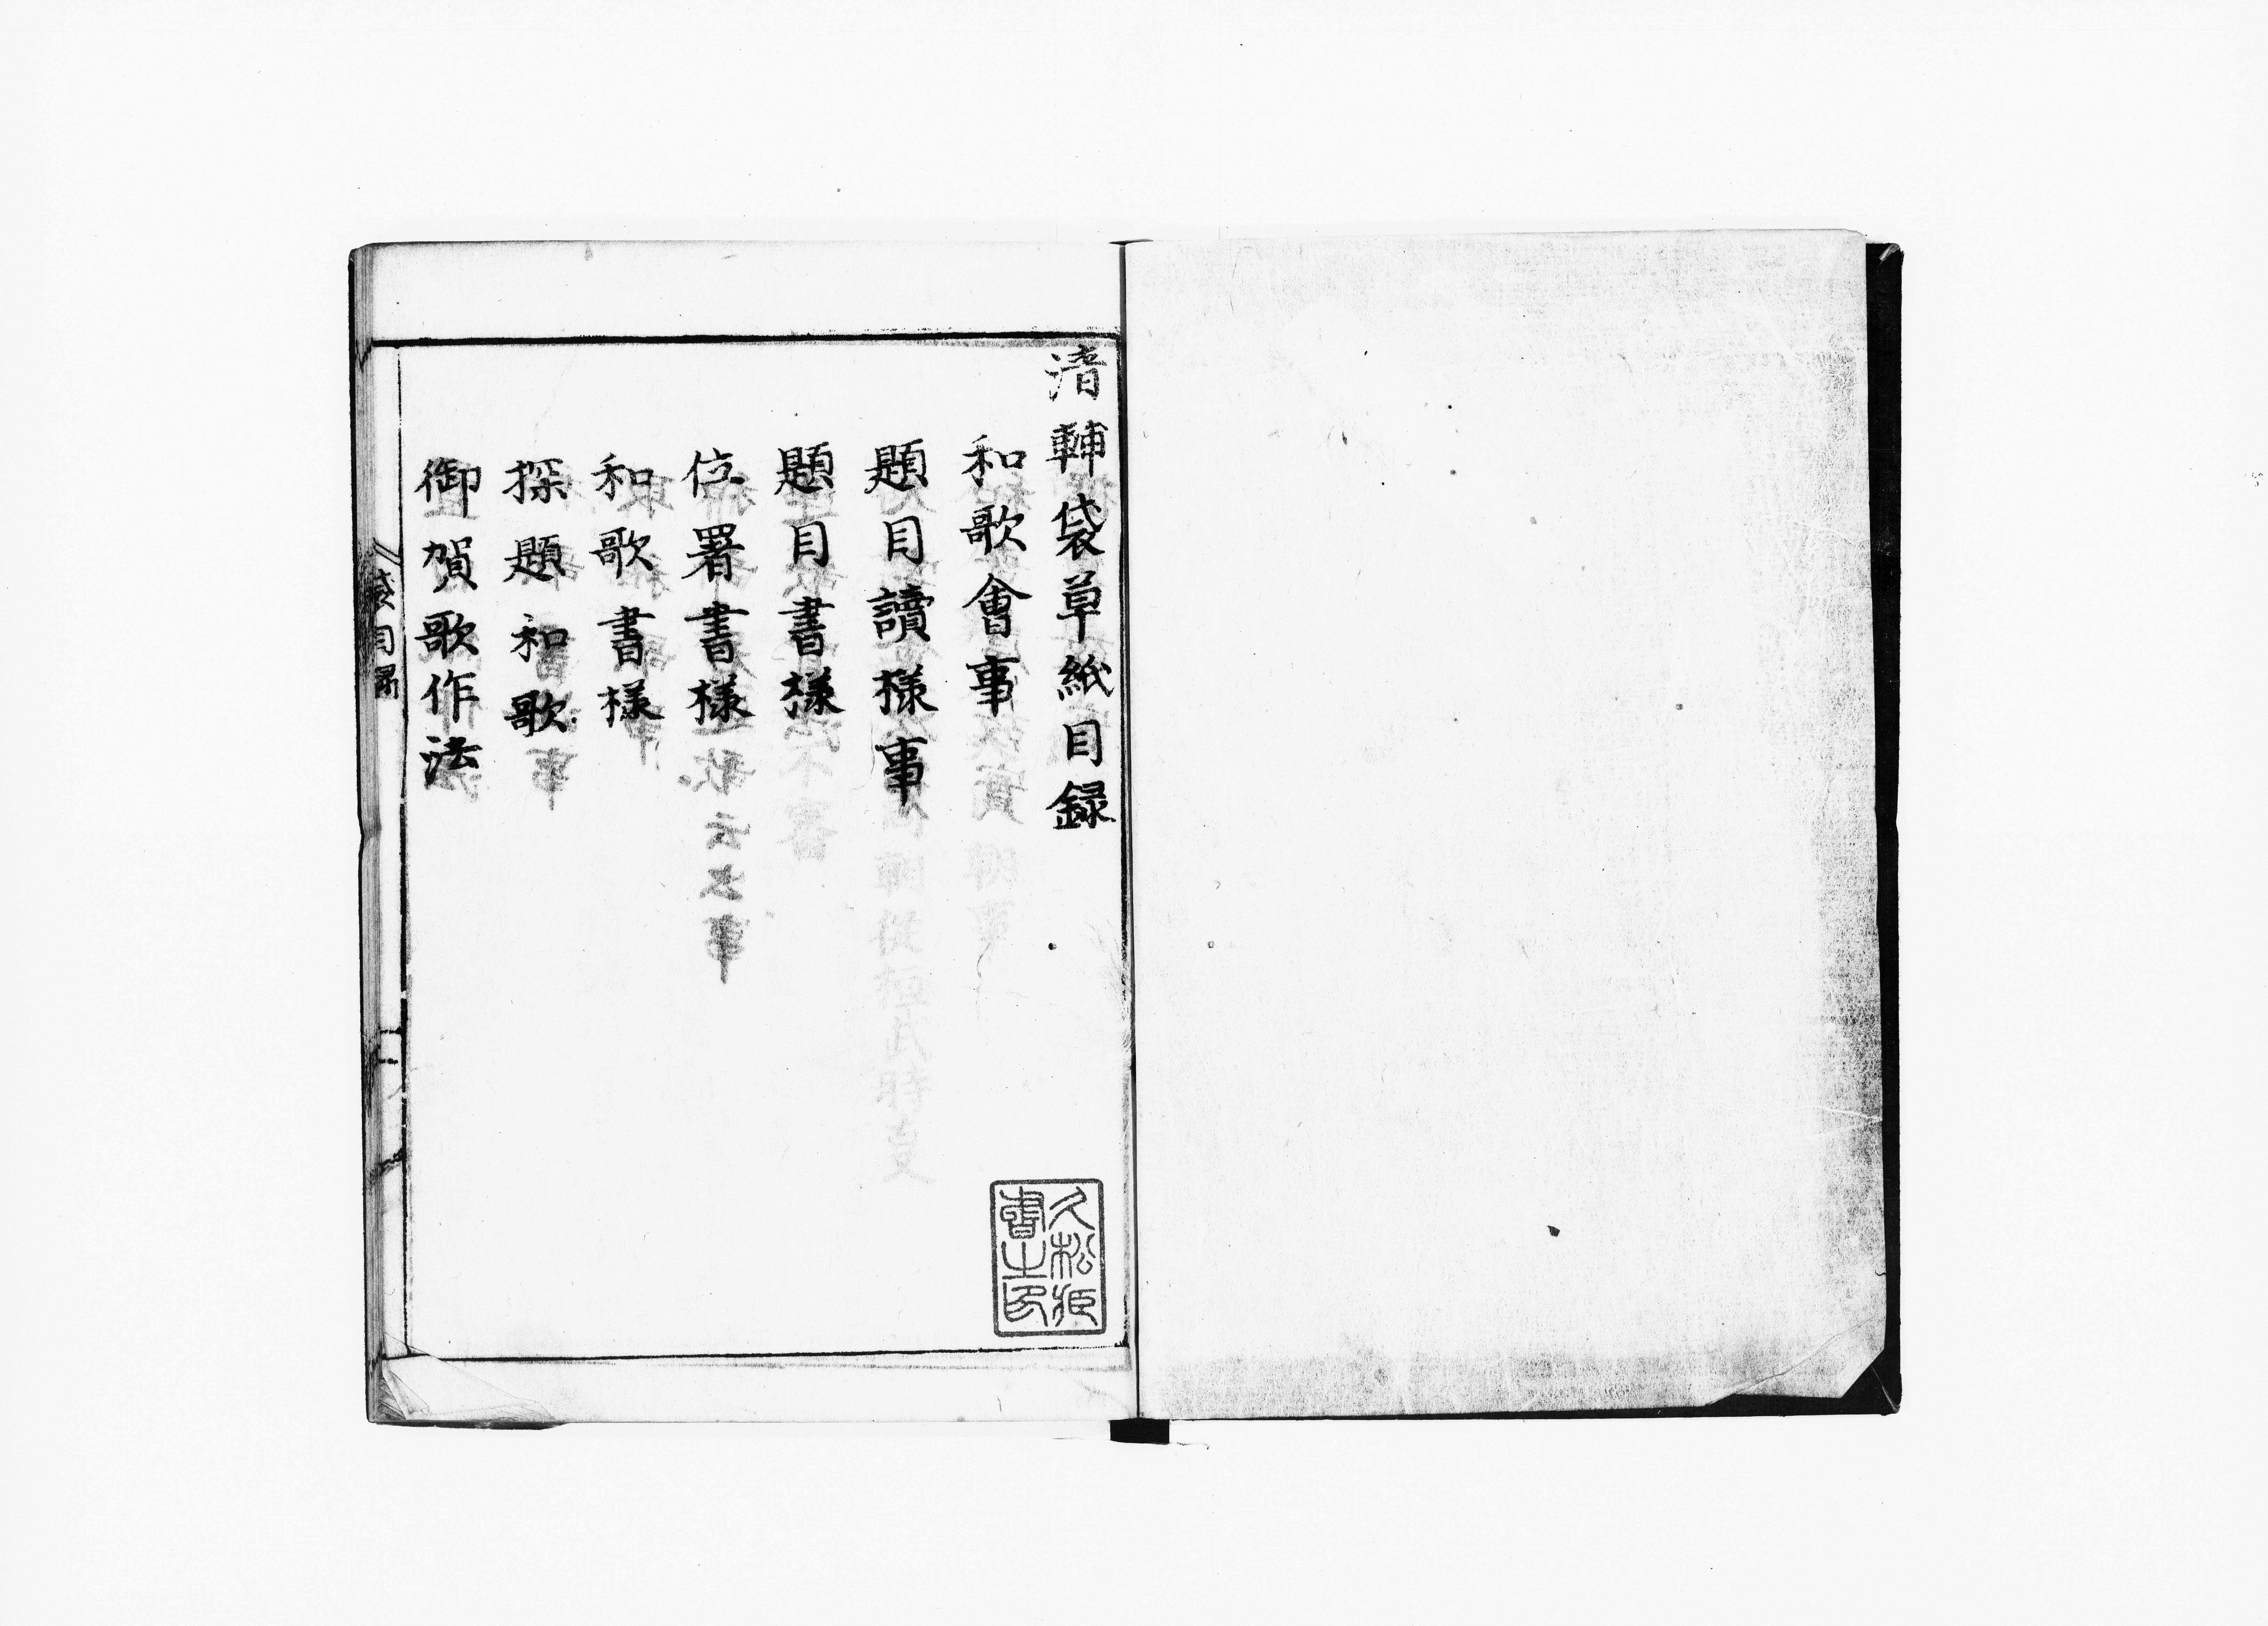 清輔袋草紙目録
和歌會事
題目讀様事
題目書様
位署書様
和歌書様
探題和歌
御賀歌作法
袋目録
一
久松
書之印